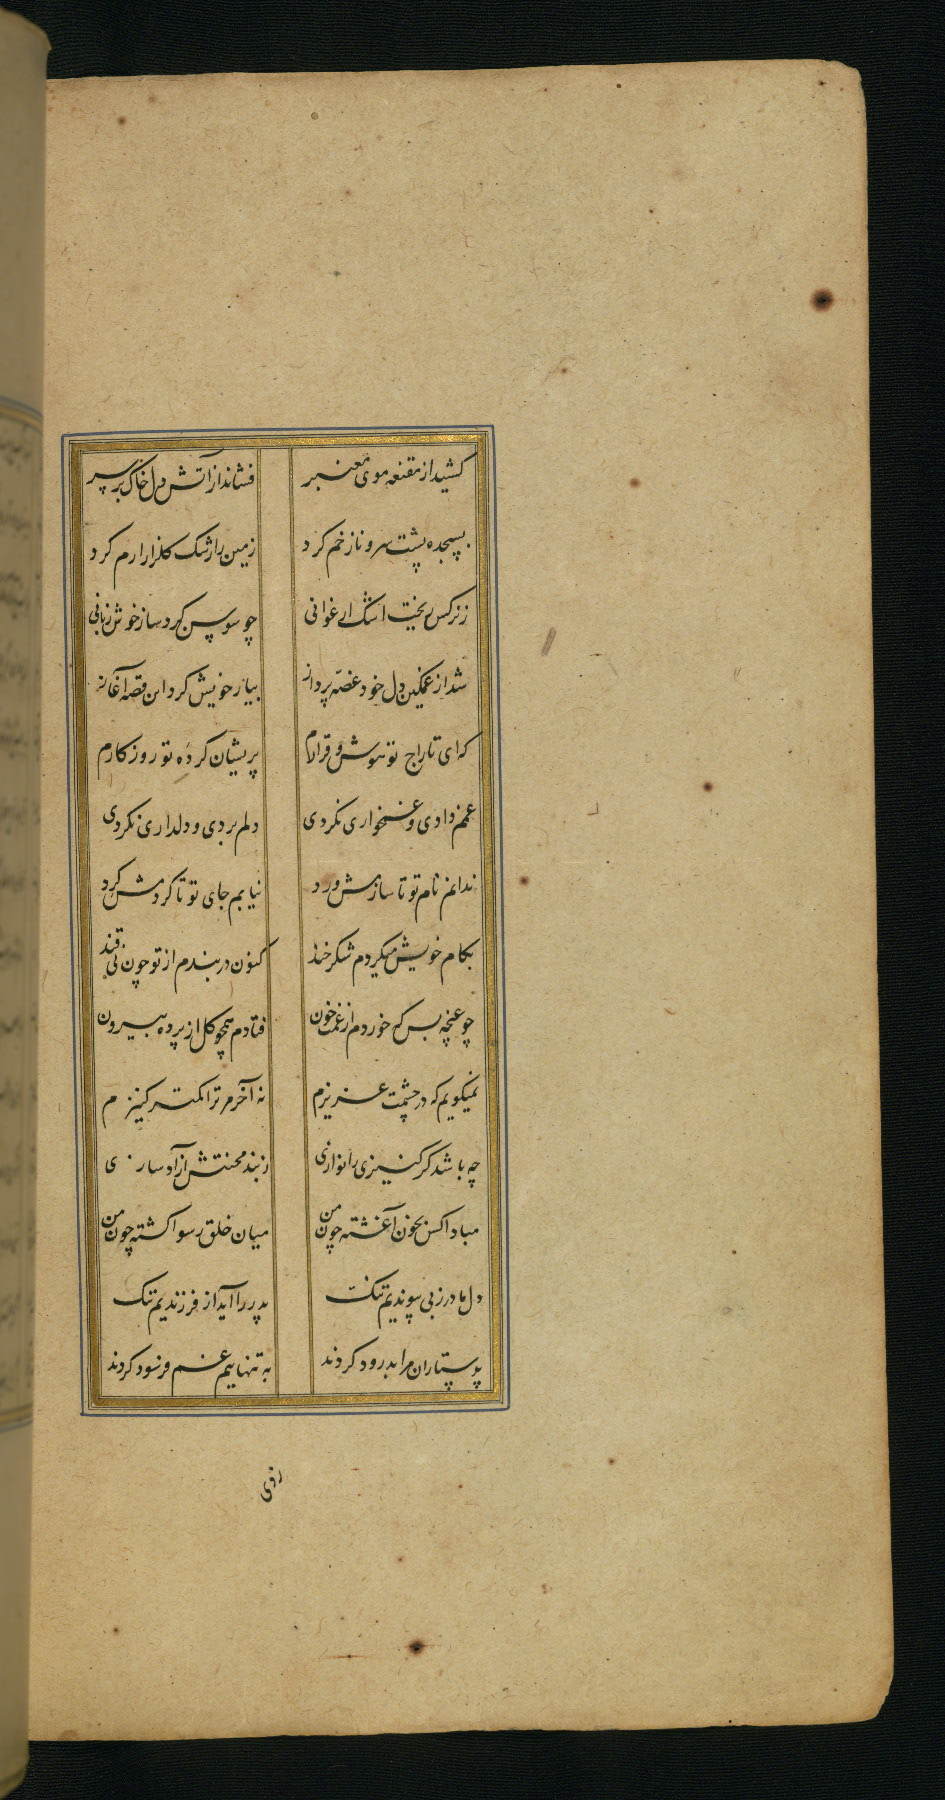 کشید از مقنعه موی معنبر فشاند از آتش دل خاک بر سر
بسجده پشت سرو ناز خم کرد زمین را رشک کلزار ارم کرد
ز نرکس ریخت اشک ارغوانی چو سوسن کرد ساز خوش زبانی
شد از غمکین دل خود غصه پرداز بیار خویش کرد این قصه آغاز
که ای تاراج تو هوش و قرارم پریشان کرده تو روزکارم
غمم دادی و غمخواری نکردی دلم بردی و دلداری نکردی
ندانم نام تو تا سازمش ورد نیابم جای تو تا کردمش کرد
بکام خویش میکردم شکرخند کنون در بندم از تو چون نی قند
چو غنچه بس که خوردم از غمت خون فتادم همچو کل از پرده بیرون
نمیکویم که در چشمت عزیزم نه آخر مر ترا کمتر کنیزم
چه باشد کر کنیزی را نوازی ز بند محنتش آزاد سازی
مبادا کس بخون آغشته چون من میان خلق رسوا کشته چون من
دل مادر ز بی پیوندیم تنک پدر را آید از فرزندیم ننک
پرستاران مرا بدرود کردند به تنهاییم غم فرسود کردند
زدی